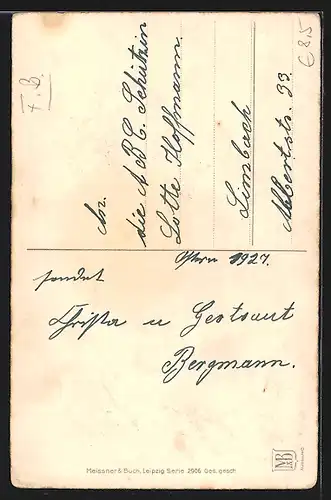 F. B.
€ 8,5
An.
die A B C. Schützin
Lotte Hoffmann.
Limbach
Albertstr. 33.
Ostern 1927.
sendet
Christa u Gertraut
Bergmann.
Meissner & Buch, Leipzig Serie 2906 Ges. gesch
M&B